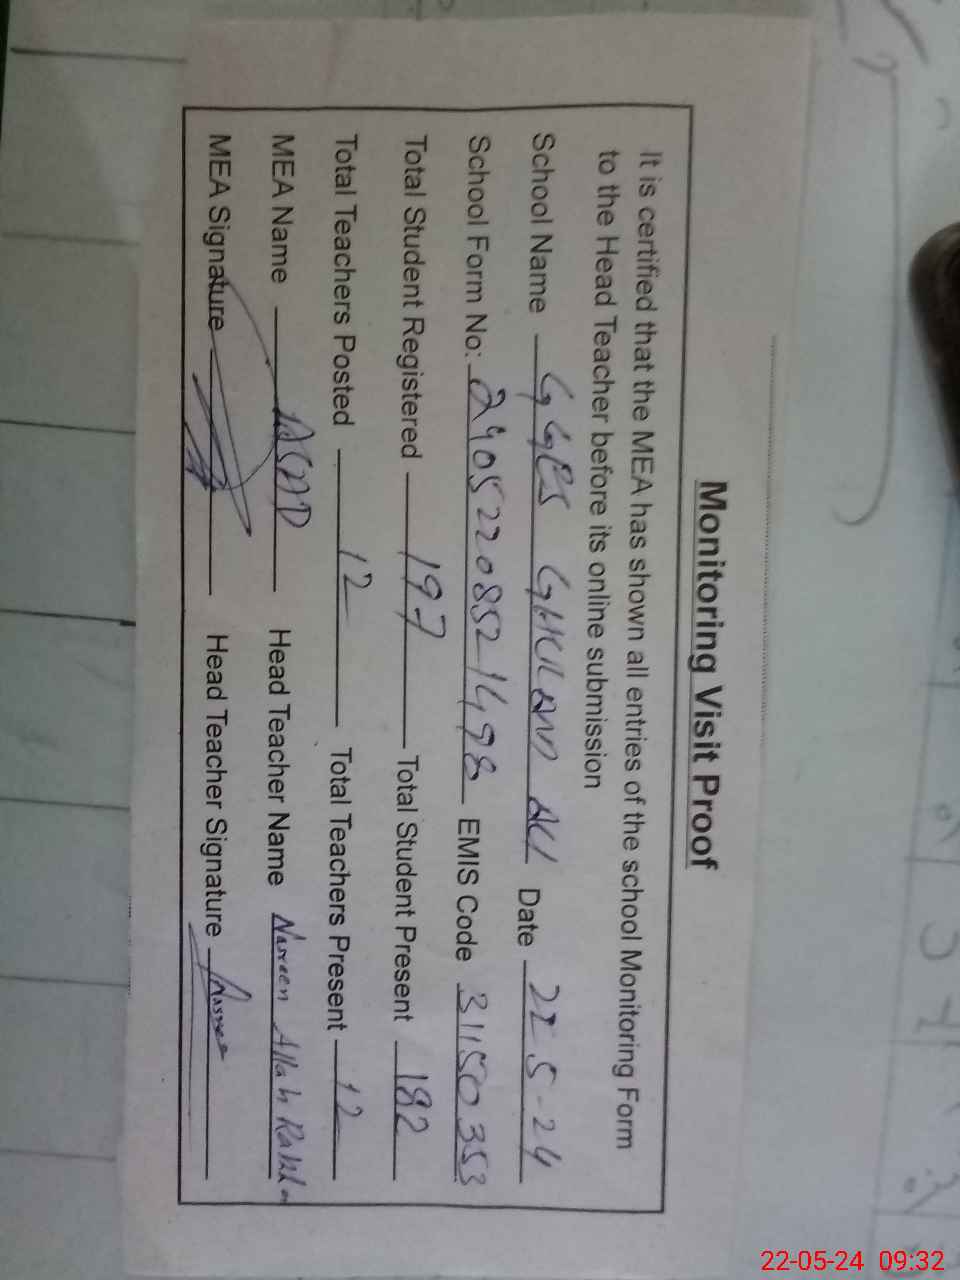 Monitoring Visit Proof
It is certified that the MEA has shown all entries of the school Monitoring Form
to the Head Teacher before its online submission
School Name GGES GHULAM ALI Date 22 5-24
School Form No: 24052208521498 EMIS Code 31150353
Total Student Registered 197 Total Student Present 182
Total Teachers Posted 12 Total Teachers Present 12
MEA Name ASAD Head Teacher Name Nasreen Allah Rakha
MEA Signature Head Teacher Signature
22-05-24 09:32